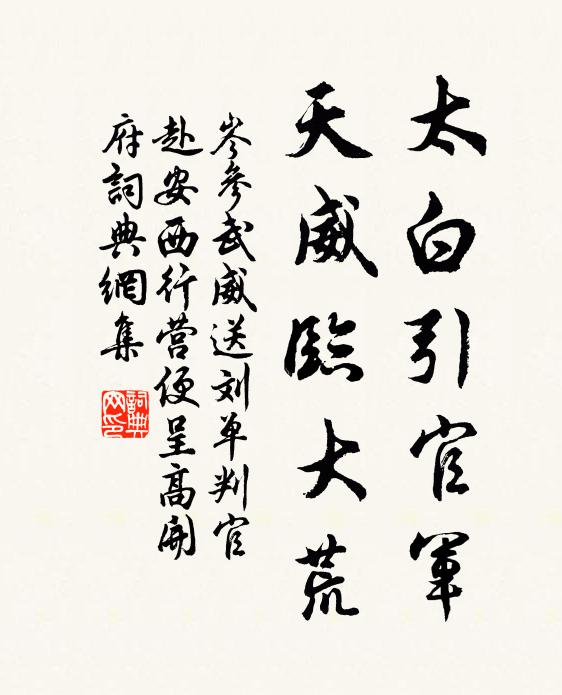 太白引官軍
天威臨大荒
岑參武威送刘单判官
赴安西行营便呈高開
府詞典網集
詞典网印